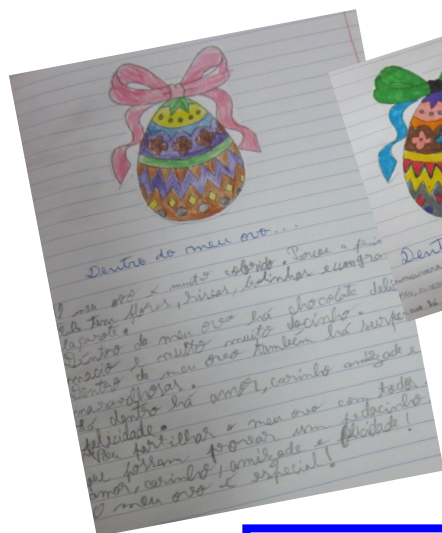 Dentro do meu ovo...
O meu ovo é muito colorido. Parece a
Ele tem flores, riscos, bolinhas e um
laçarote.
Dentro do meu ovo há chocolate
e muito muito docinho.
Dentro do meu ovo também há
maravilhosas.
Lá dentro há amor, carinho amizade e
felicidade.
partilhar o meu ovo com todos
que possam provar um pedacinho
amor, carinho, amizade e felicidade!
O meu ovo é especial!